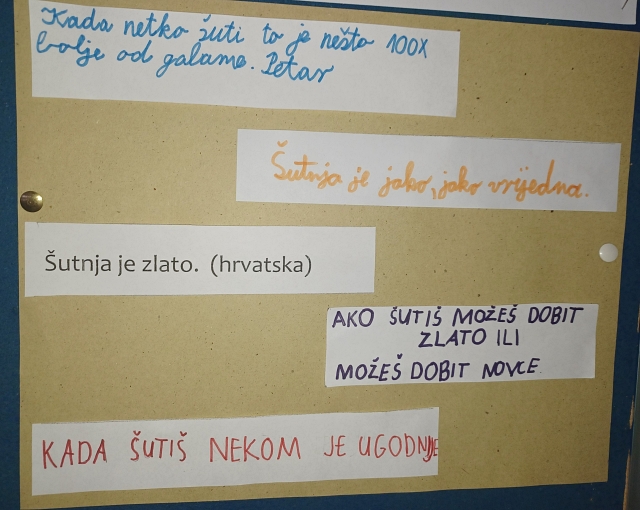 Kada netko šuti to je nešto 100X
bolje od galame. Petar
Šutnja je jako, jako vrijedna.
Šutnja je zlato. (hrvatska)
AKO ŠUTIŠ MOŽEŠ DOBIT
ZLATO ILI
MOŽEŠ DOBIT NOVCE
KADA ŠUTIŠ NEKOM JE UGODNIJE